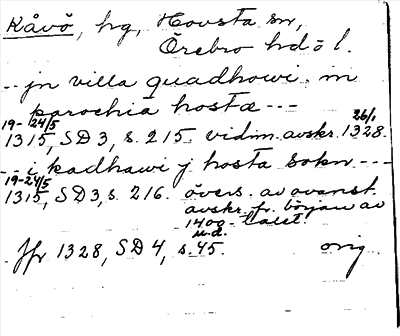 Råvö, hg, Hovsta sn,
Örebro hd ö l.
-- jn villa quadhowi. in
parochia hostæ ---
19-24/5 26/1
1315, SD 3, s. 215. vidim. avskr. 1328.
-- i kadhawi j hosta sokn ---
19-24/5
1315, SD 3, s. 216. övers. av ovanst.
avskr. fr. början av
1400-talet.
u.d.
Jfr 1328, SD 4, s. 45. orig.